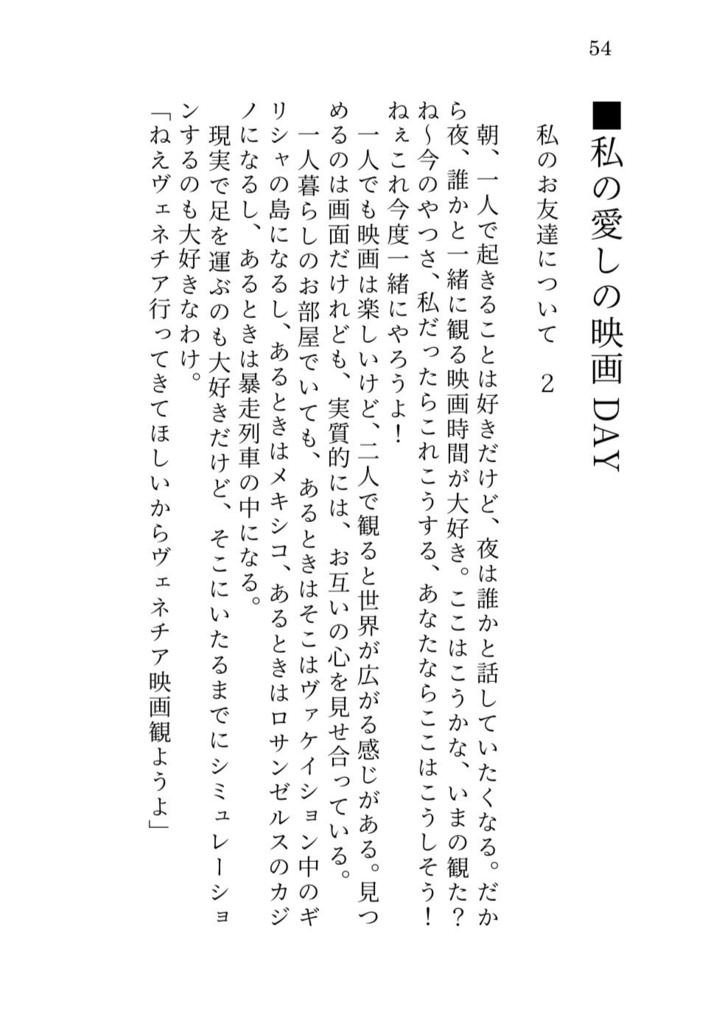 54
■私の愛しの映画 DAY
私のお友達について　2
　朝、一人で起きることは好きだけど、夜は誰かと話していたくなる。だか
ら夜、誰かと一緒に観る映画時間が大好き。ここはこうかな、いまの観た？
ね〜今のやつさ、私だったらこれこうする、あなたならここはこうしそう！
ねぇこれ今度一緒にやろうよ！
　一人でも映画は楽しいけど、二人で観ると世界が広がる感じがある。見つ
めるのは画面だけれども、実質的には、お互いの心を見せ合っている。
　一人暮らしのお部屋でいても、あるときはそこはヴァケイション中のギ
リシャの島になるし、あるときはメキシコ、あるときはロサンゼルスのカジ
ノになるし、あるときは暴走列車の中になる。
　現実で足を運ぶのも大好きだけど、そこにいたるまでにシミュレーショ
ンするのも大好きなわけ。
「ねえヴェネチア行ってきてほしいからヴェネチア映画観ようよ」